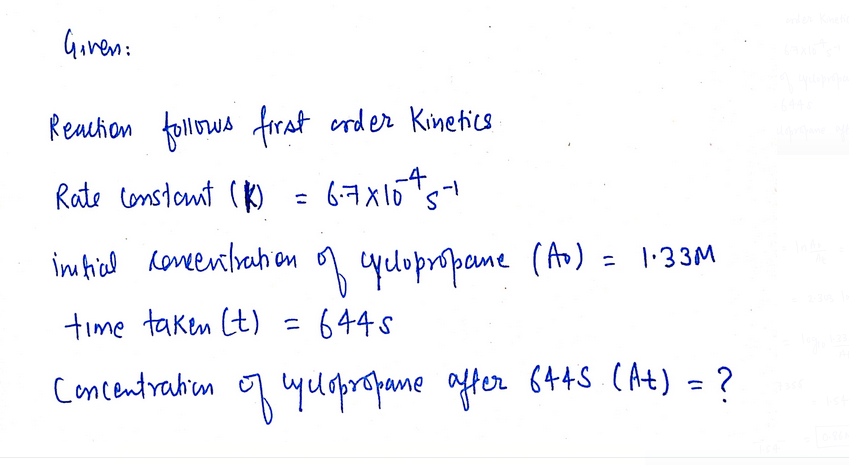 Given:
Reaction follows first order Kinetics
Rate constant (K) = 6.7×10⁻⁴ s⁻¹
initial concentration of cyclopropane (A₀) = 1.33M
time taken (t) = 644s
Concentration of cyclopropane after 644S (At) = ?